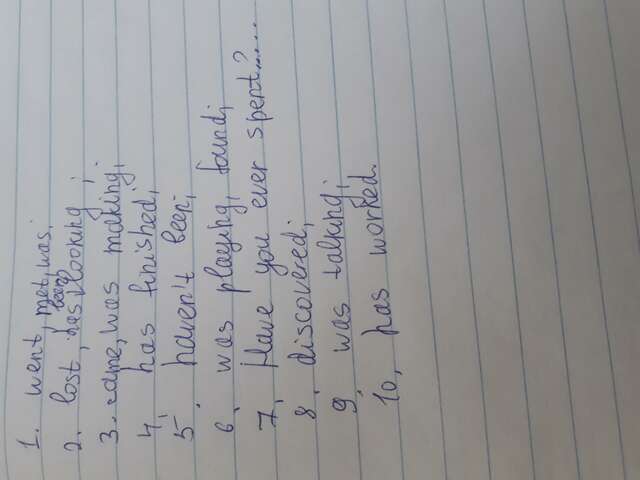 1. went, met, was.
2. lost, has been looking;
3. came, was making;
4, has finished,
5. haven't been;
6, was playing, found,
7, Have you ever spent.....?
8, discovered,
9. was talking;
10, has worked.